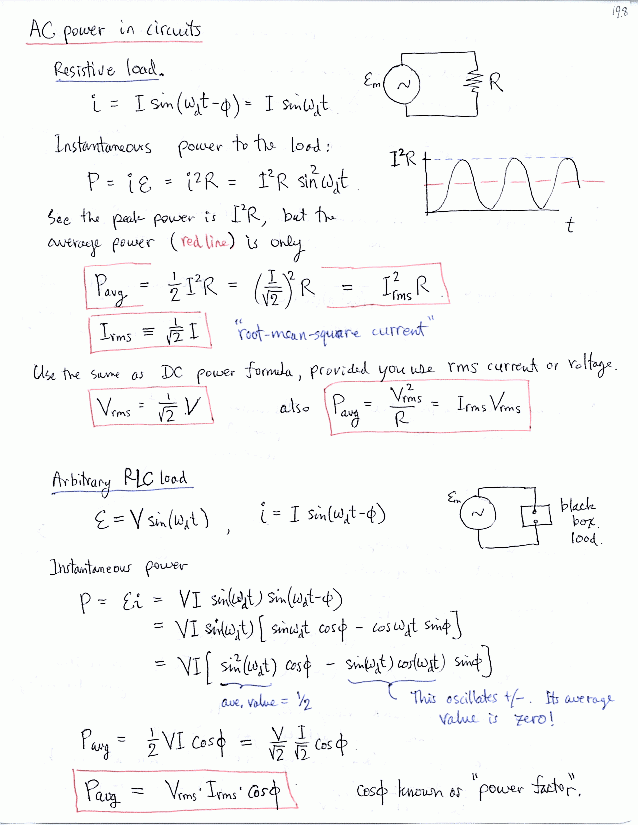 19.8
AC power in circuits
Resistive load.
i = I sin(ω_d t-ϕ) = I sin ω_d t
ℰm ~ R
Instantaneous power to the load:
P = iℰ = i²R = I²R sin²ω_d t.
I²R
t
See the peak power is I²R, but the
average power (red line) is only
P_avg = ½ I²R = (I/√2)² R = I²_rms R.
I_rms ≡ 1/√2 I "root-mean-square current"
Use the same as DC power formula, provided you use rms current or voltage.
V_rms = 1/√2 V also P_avg = V²_rms/R = I_rms V_rms
Arbitrary RLC load
ℰ = V sin(ω_d t), i = I sin(ω_d t-ϕ)
ℰm ~ black
box.
load.
Instantaneous power
P = ℰi = VI sin(ω_d t) sin(ω_d t-ϕ)
= VI sin(ω_d t) [ sin ω_d t cosϕ - cos ω_d t sinϕ ]
= VI [ sin²(ω_d t) cosϕ - sin(ω_d t) cos(ω_d t) sinϕ ]
ave. value = 1/2 This oscillates +/-. Its average
value is zero!
P_avg = ½ VI cosϕ = V/√2 I/√2 cosϕ.
P_avg = V_rms · I_rms · cosϕ cosϕ known as "power factor".